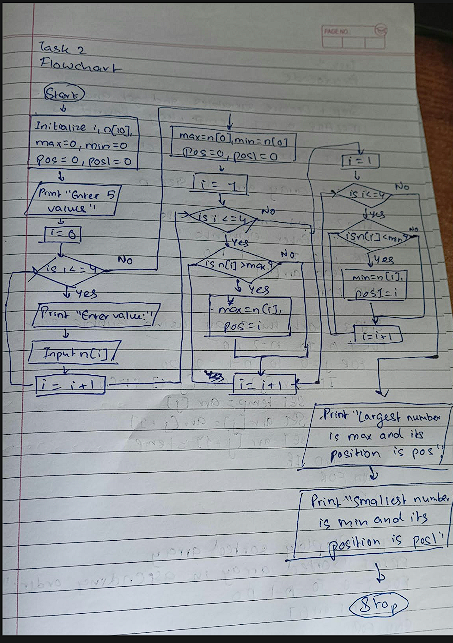 PAGE NO.
Task 2
Flowchart
Start
Initialize i, n[10],
max=0, min=0
pos=0, pos1=0
Print "Enter 5
values"
i=0
is i<=4
No
Yes
Print "Enter value:"
Input n[i]
i = i+1
max=n[0], min=n[0]
pos=0, pos1=0
is i<=4
No
Yes
is n[i]>max?
No
Yes
max=n[i],
pos=i
i=i+1
i=1
is i<=4
No
Yes
is n[i]<min?
No
Yes
min=n[i],
pos1=i
i=i+1
Print "Largest number
is max and its
position is pos"
Print "Smallest number
is min and its
position is pos1"
Stop